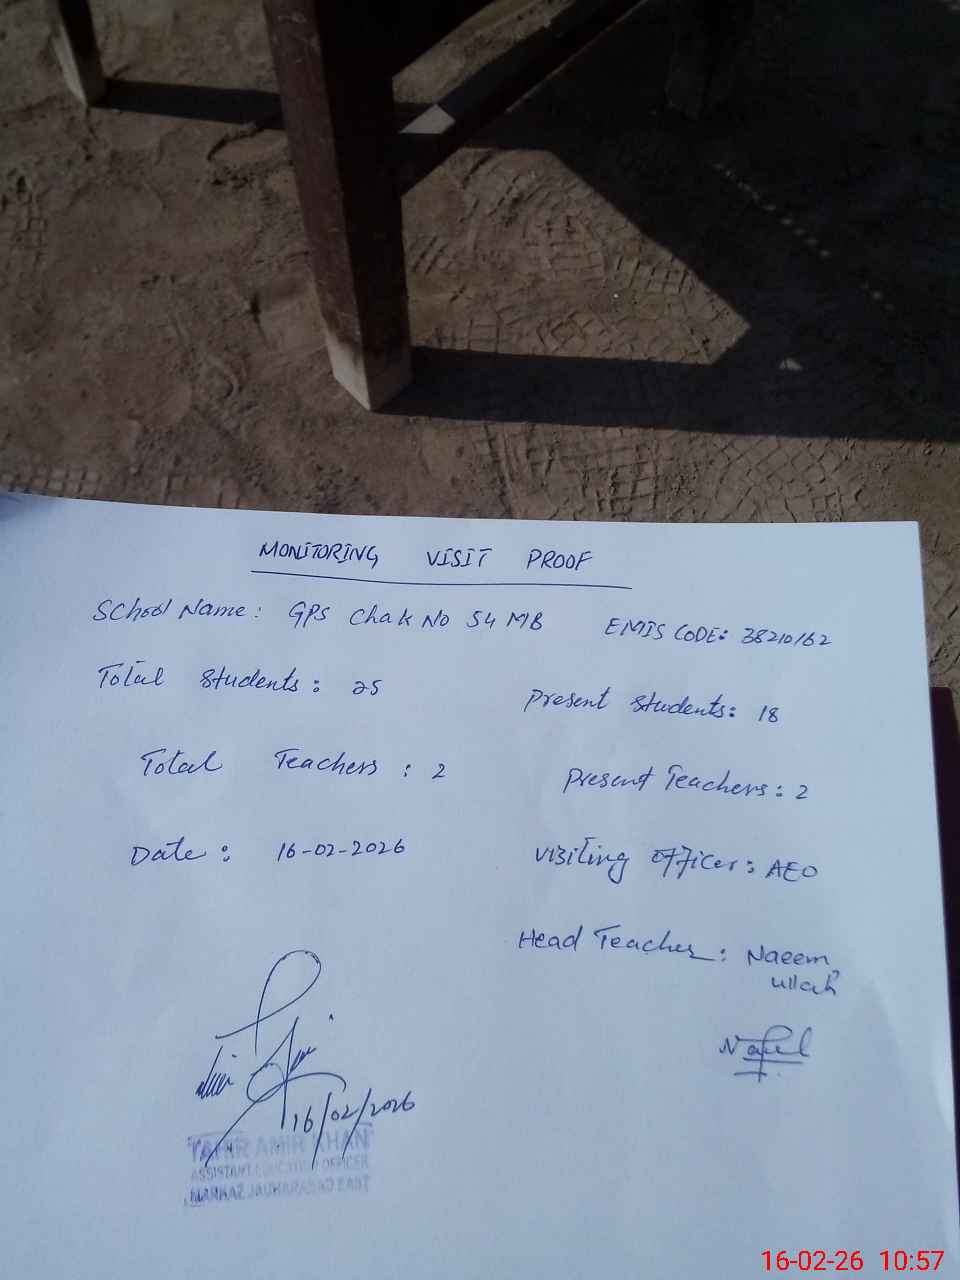 MONITORING VISIT PROOF
School Name: GPS Chak No 54 MB EMIS CODE: 38210162
Total Students: 25 Present Students: 18
Total Teachers: 2 Present Teachers: 2
Date: 16-02-2026 Visiting Officer: AEO
Head Teacher: Naeem
ullah
16/02/2026
TAHIR AMIR KHAN
ASSISTANT EDUCATION OFFICER
MARKAZ JAUHARABAD EAST
16-02-26 10:57